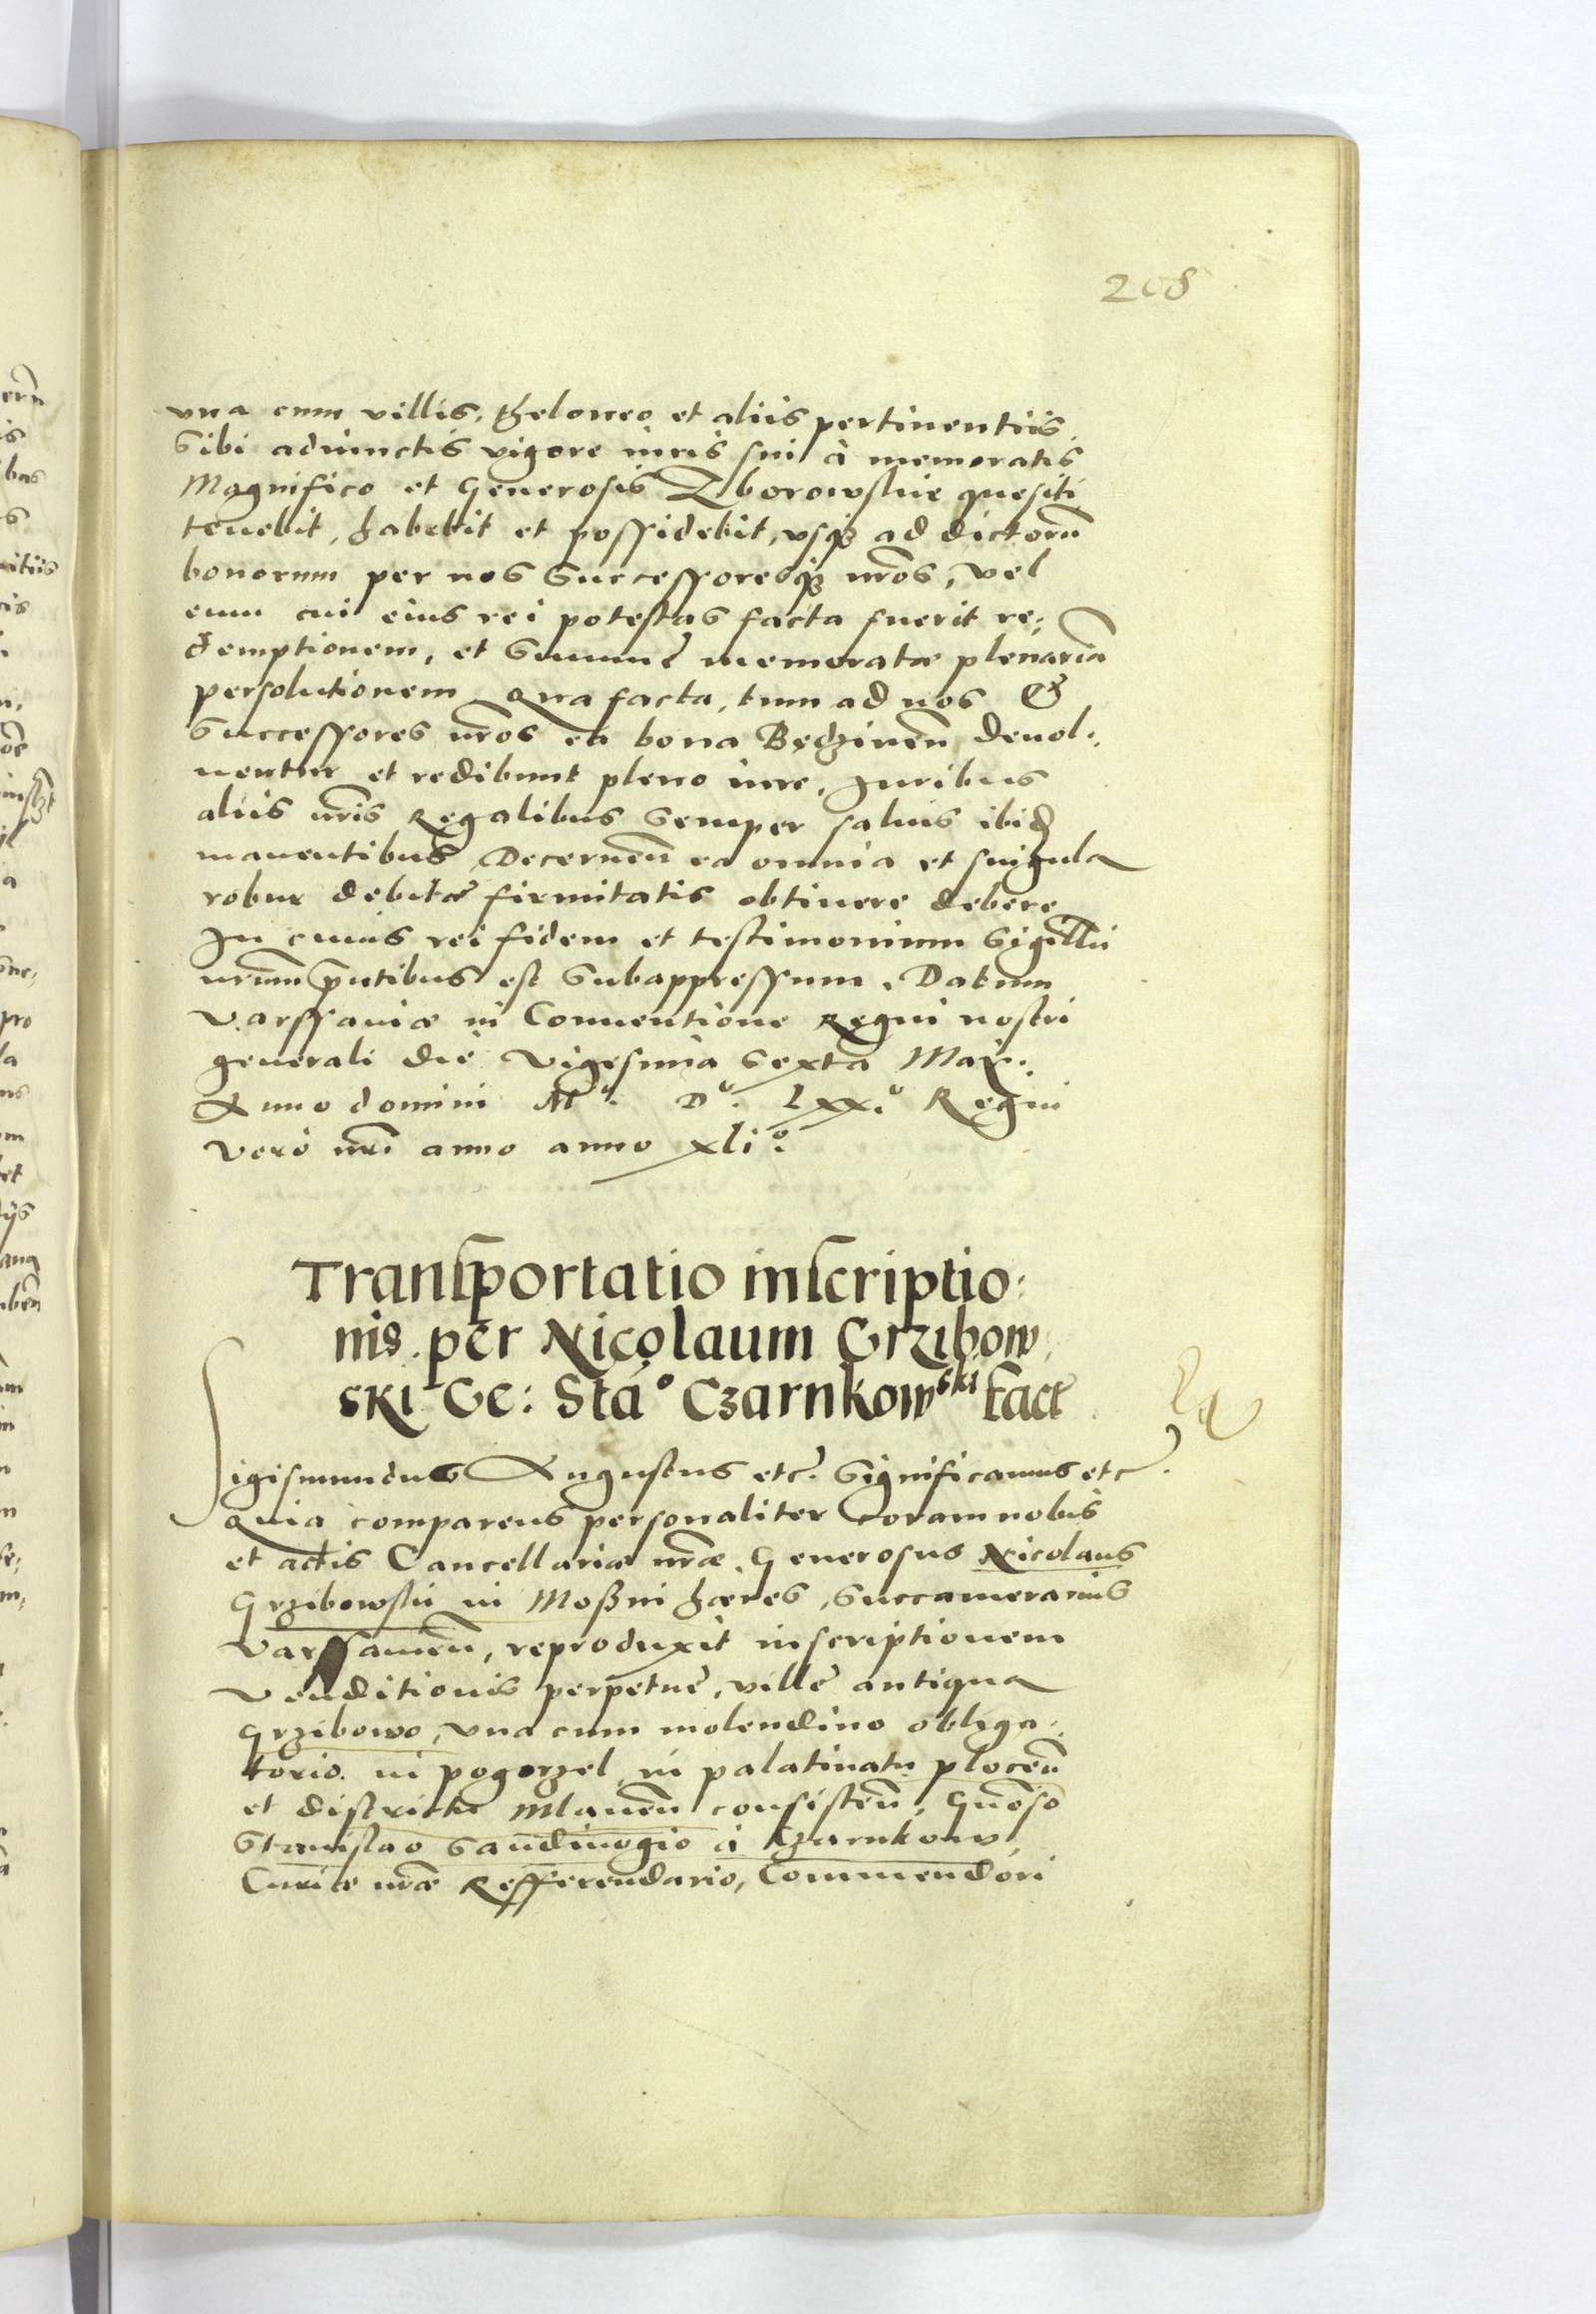 208
vna cum villis, theloneo et aliis pertinentiis
sibi adiunctis vigore iuris sui à memoratis
Magnifico et Generosis Zborowskie quesiti
tenebit, habebit et possidebit, vsq₃ ad dictorū
bonorum per nos Successoresq₃ nr̄os, vel
eum cui eius rei potestas facta fuerit re:
demptionem, et Summę memoratæ plenariā
persolutionem Qua facta, tum ad nos &
Successores nr̄os ea bona Będzinēn̄ deuol:
uentur et redibunt pleno iure, Juribus
aliis nr̄is Regalibus semper saluis ibid̄
manentibus, Decernēn̄ ea omnia et singula
robur debitæ firmitatis obtinere debere
In cuius rei fidem et testimonium Sigillū
nr̄um pn̄tibus est Subappressum. Datum
Varssauiæ in Conuentione Regni nostri
generali die Vigesima Sexta Maii.
Anno domini Mº. Dº. Lxxº. Regni
vero nr̄i anno anno xliº.
Transportatio inscriptio:
nis per Nicolaum Grzibow
ski Ge: Staº Czarnkowski factę
Sigismundus Augustus etc. Significamus etc.
Quia comparens personaliter Coram nobis
et actis Cancellariæ nr̄æ, Generosus Nicolaus
Grzibowski in Moßni hæres, Succamerarius
Varssauiēn̄, reproduxit inscriptionem
Venditionis perpetuę, villę antiqua
Grzibowo, vna cum molendino obliga:
torio in pogorzel in palatinatu plocēn̄
et districtu Mlauēn̄ consistēn̄, Gn̄oso
Stanislao Sandiuogio à Czarnkow,
Curiæ nr̄æ Refferendario, Commendori